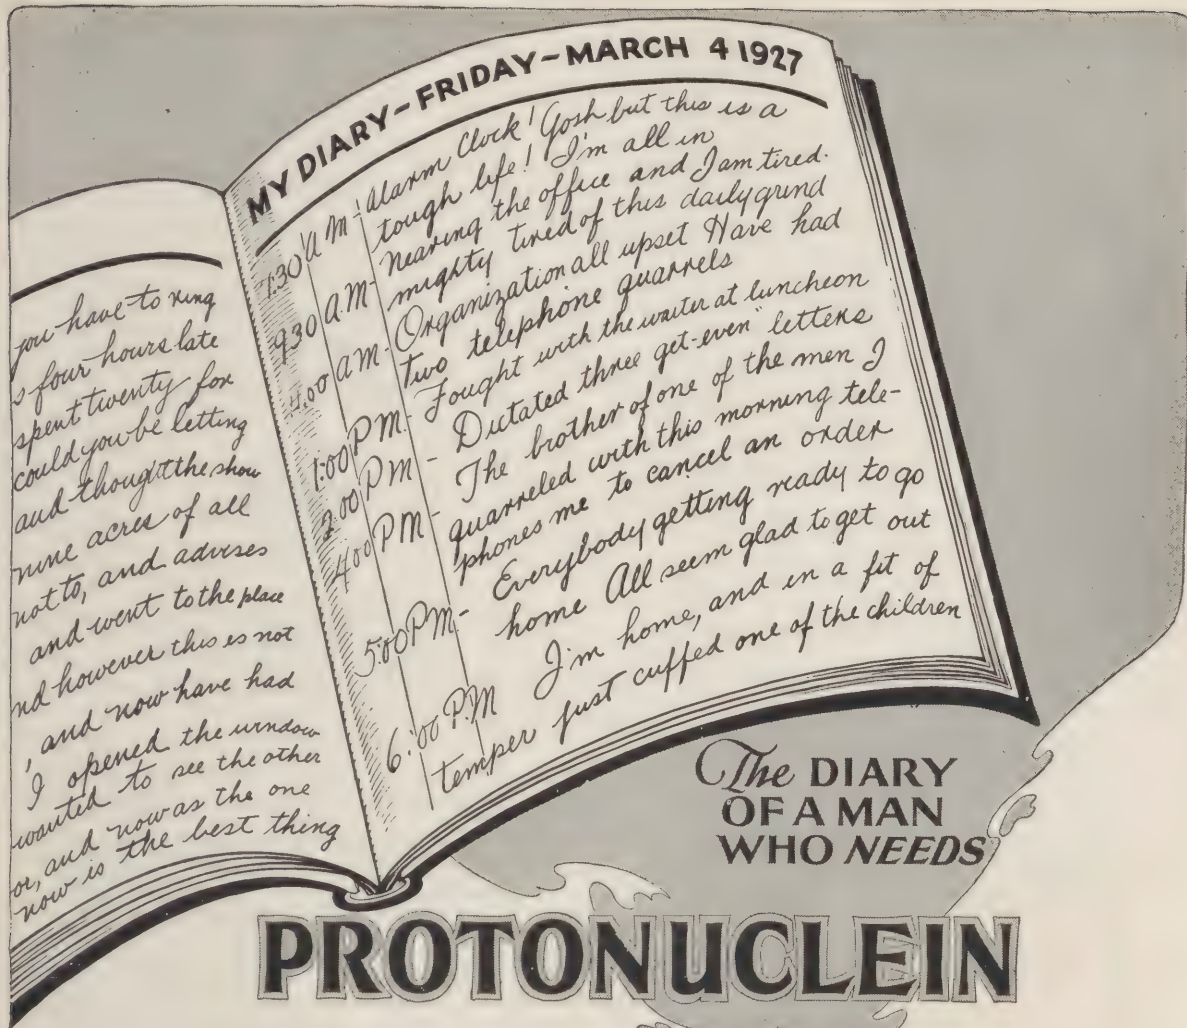 you have to ring
s four hours late
spent twenty for
could you be letting
and thought the show
nine acres of all
not to, and advises
and went to the place
nd however this is not
, and now have had
I opened the window
wanted to see the other
or, and now as the one
now is the best thing
MY DIARY - FRIDAY - MARCH 4 1927
7:30 A M - Alarm Clock! Gosh but this is a
tough life! I'm all in
9:30 A.M - Nearing the office and I am tired.
mighty tired of this daily grind
11:00 A M - Organization all upset Have had
two telephone quarrels
1:00 P M - Fought with the waiter at luncheon
2:00 P M - Dictated three get-even" letters
4:00 P M - The brother of one of the men I
quarreled with this morning tele-
phones me to cancel an order
5:00 P M - Everybody getting ready to go
home All seem glad to get out
6:00 P.M I'm home, and in a fit of
temper just cuffed one of the children
The DIARY
OF A MAN
WHO NEEDS
PROTONUCLEIN